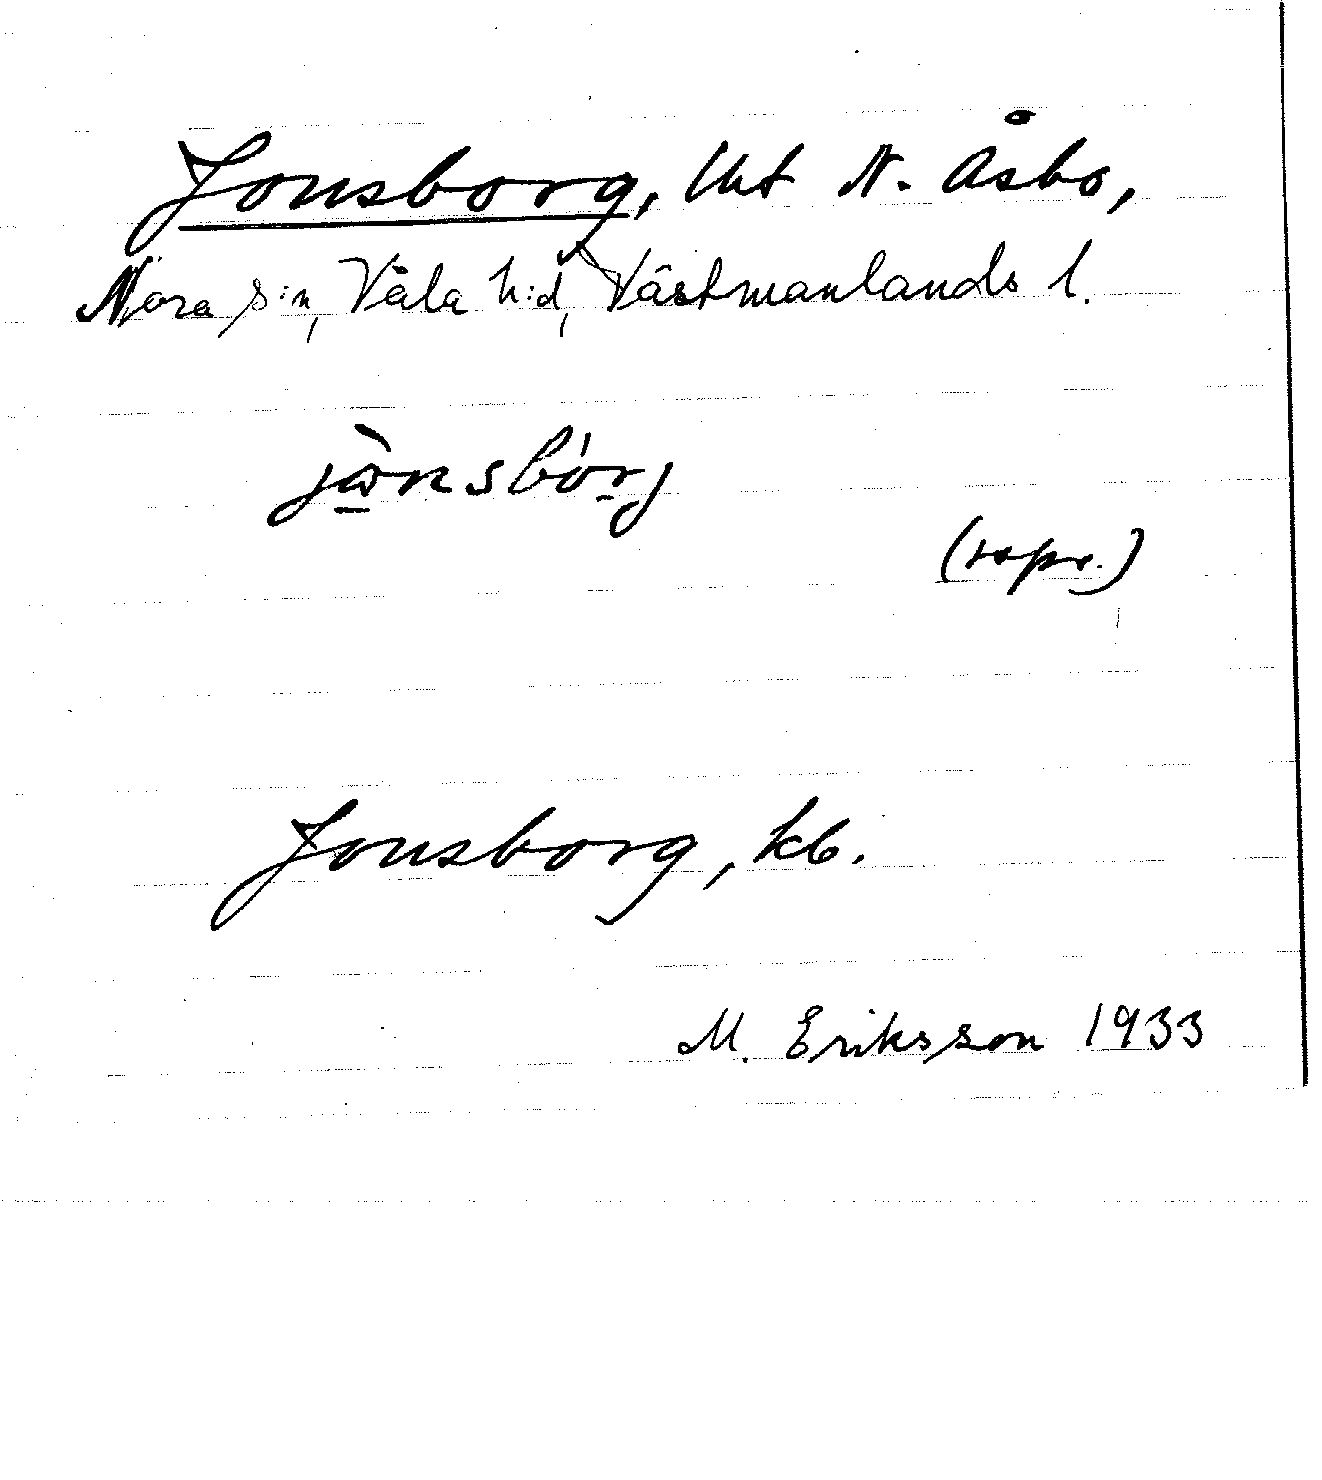 Jonsborg, lht N. Åsbo,
Nora s:n, Våla h:d, Västmanlands l.
jɷ̀nsbórj
(sspr.)
Jonsborg, kb.
M. Eriksson 1933